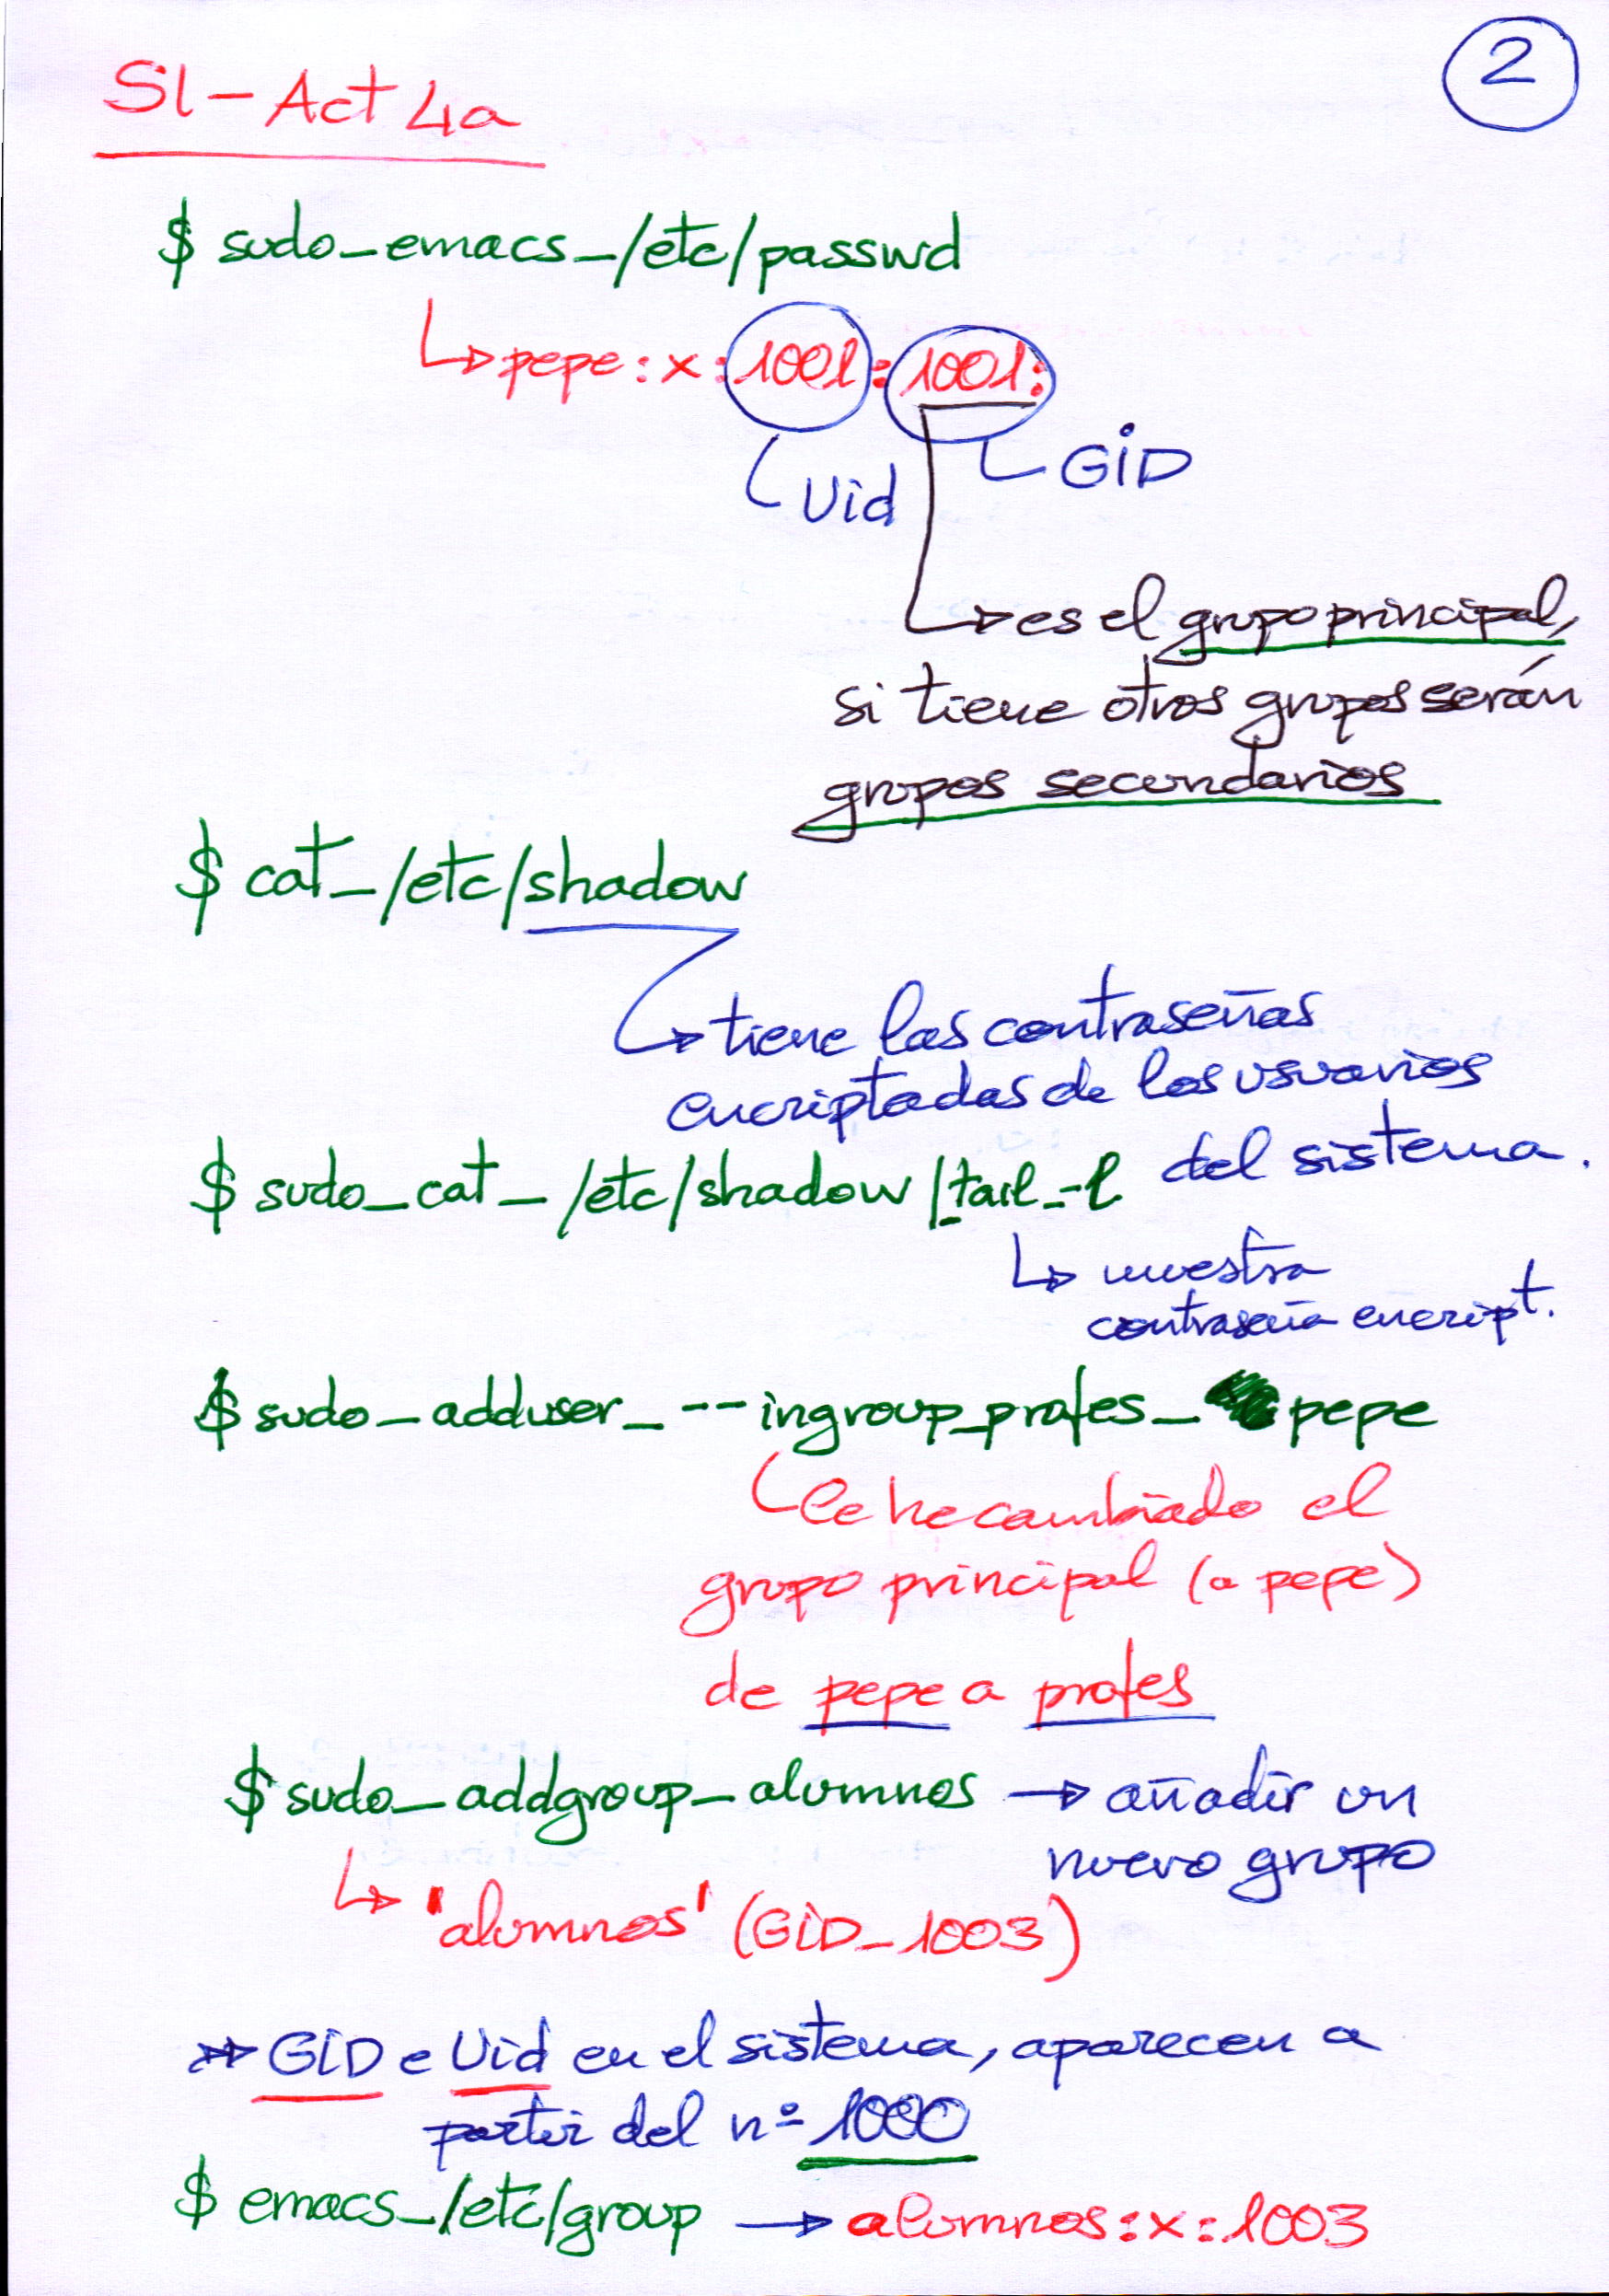 2
SI - Act 4a
$ sudo_emacs_/etc/passwd
pepe:x:1001:1001:
Uid
GiD
es el grupo principal,
si tiene otros grupos serán
grupos secundarios
$ cat_/etc/shadow
tiene las contraseñas
encriptadas de los usuarios
del sistema.
$ sudo_cat_/etc/shadow|tail_-1
muestra
contraseña encript.
$ sudo_adduser_--ingroup_profes_pepe
le he cambiado el
grupo principal (a pepe)
de pepe a profes
$ sudo_addgroup_alumnos → añadir un
nuevo grupo
'alumnos' (GiD_1003)
GiD e Uid en el sistema, aparecen a
partir del nº 1000
$ emacs_/etc/group → alumnos:x:1003